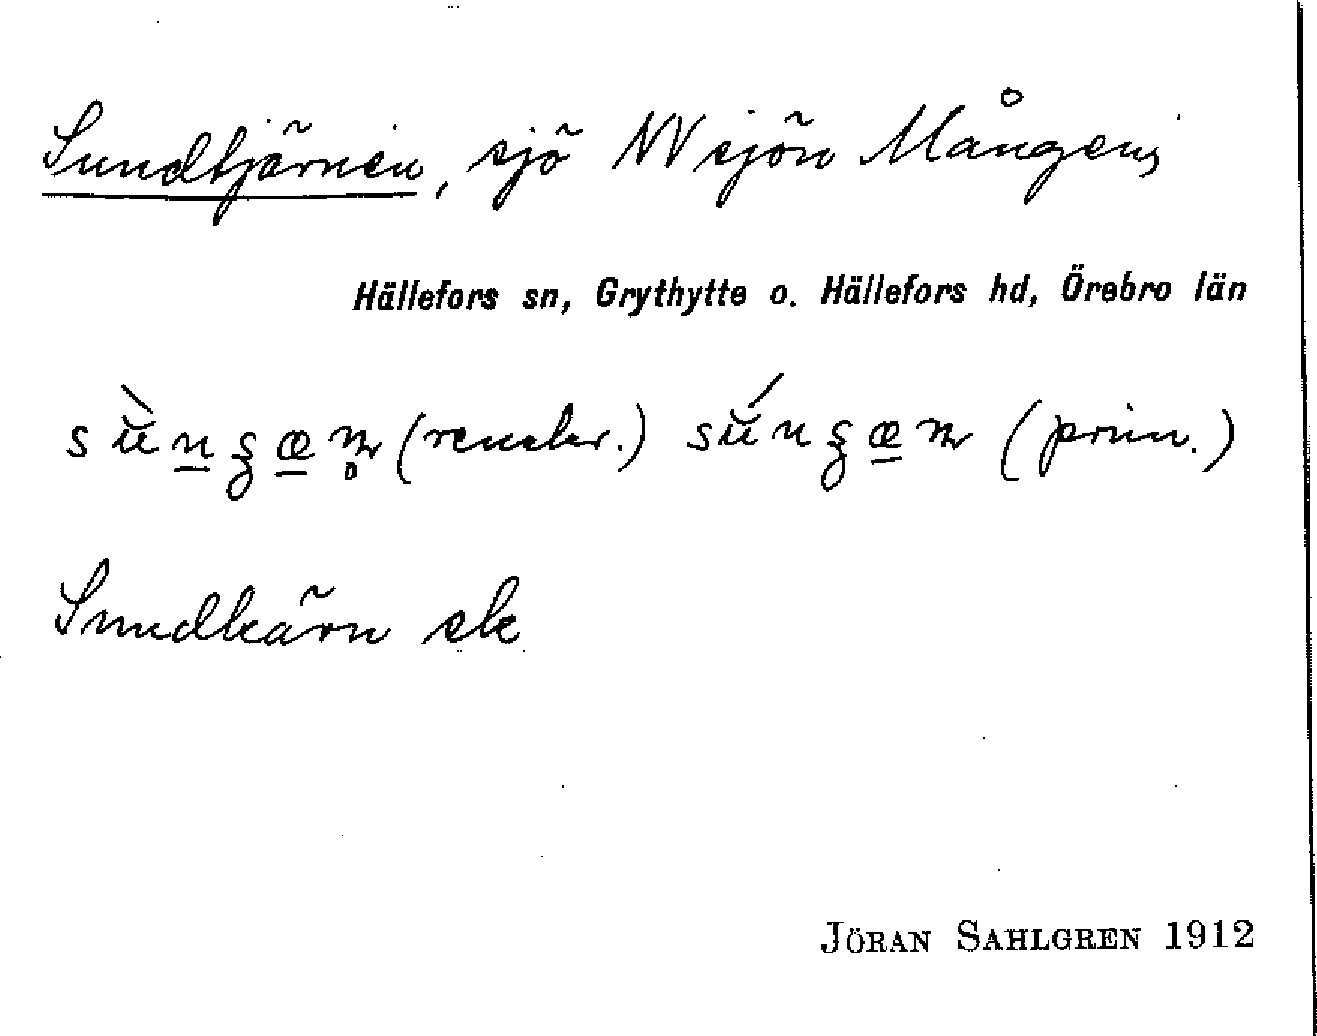 Sundtjärnen, sjö NV sjön Mången,
Hällefors sn, Grythytte o. Hällefors hd, Örebro län
(prim.)
Sundkärn sk
JÖRAN SAHLGREN 1912